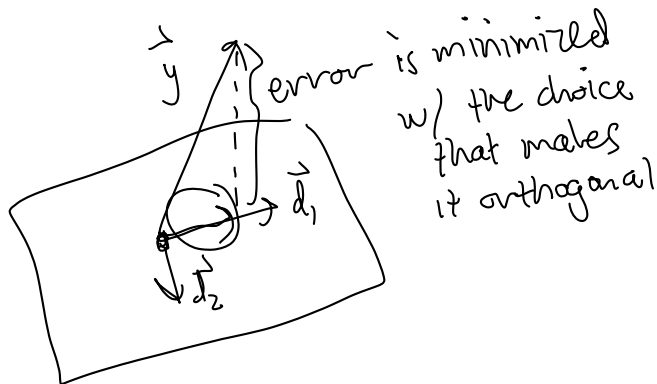 y⃗
error is minimized
w/ the choice
that makes
it orthogonal
d⃗₁
d⃗₂